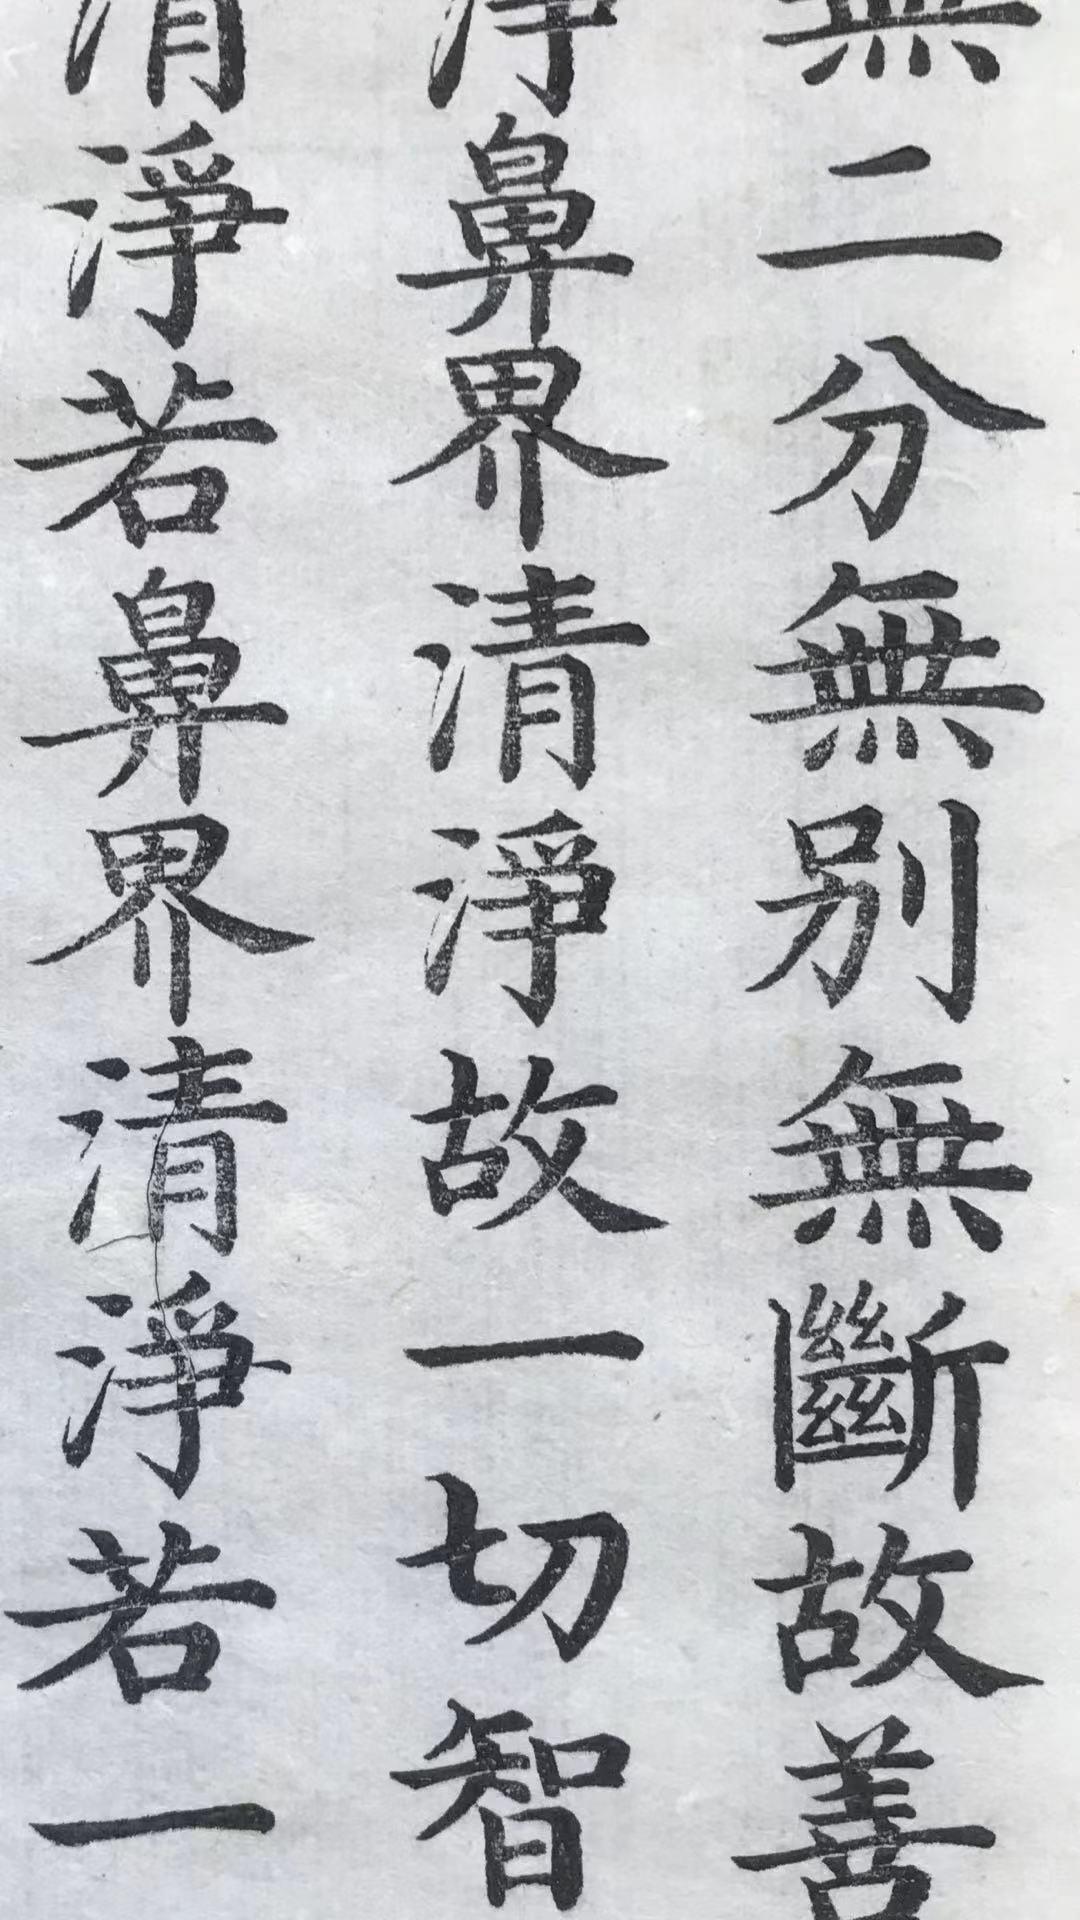 無二分無別無斷故善
淨鼻界清淨故一切智
清淨若鼻界清淨若一